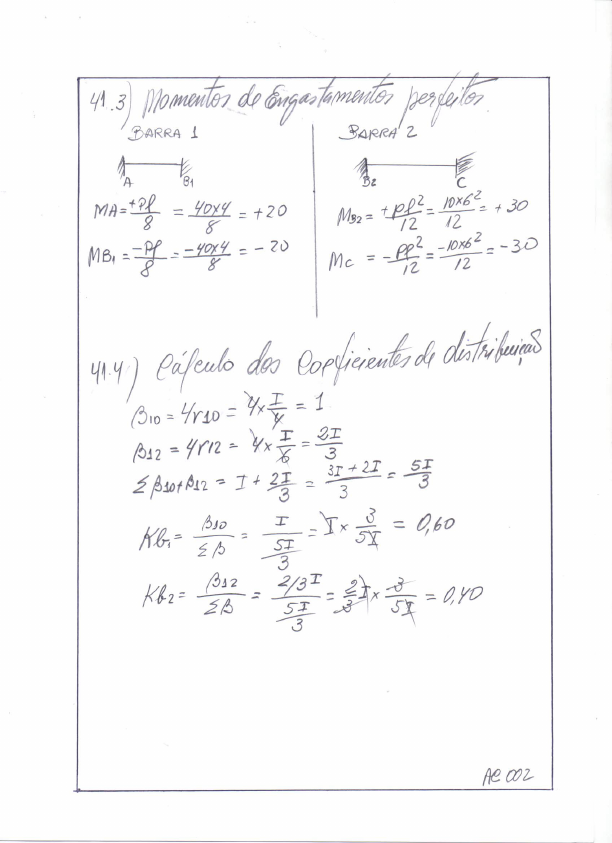 41.3) Momentos de Engastamentos perfeitos.
BARRA 1
A B1
MA = +Pl/8 = 40x4/8 = +20
MB1 = -Pl/8 = -40x4/8 = -20
BARRA 2
B2 C
MB2 = +pl²/12 = 10x6²/12 = +30
Mc = -pl²/12 = -10x6²/12 = -30
41.4) Cálculo dos Coeficientes de distribuição
β10 = 4r10 = 4x I/4 = 1
β12 = 4r12 = 4x I/6 = 2I/3
Σβ10+β12 = I + 2I/3 = 3I+2I/3 = 5I/3
Kb1 = β10/Σβ = I/5I/3 = I x 3/5I = 0,60
Kb2 = β12/Σβ = 2/3I/5I/3 = 2/3 I x 3/5I = 0,40
AC 002